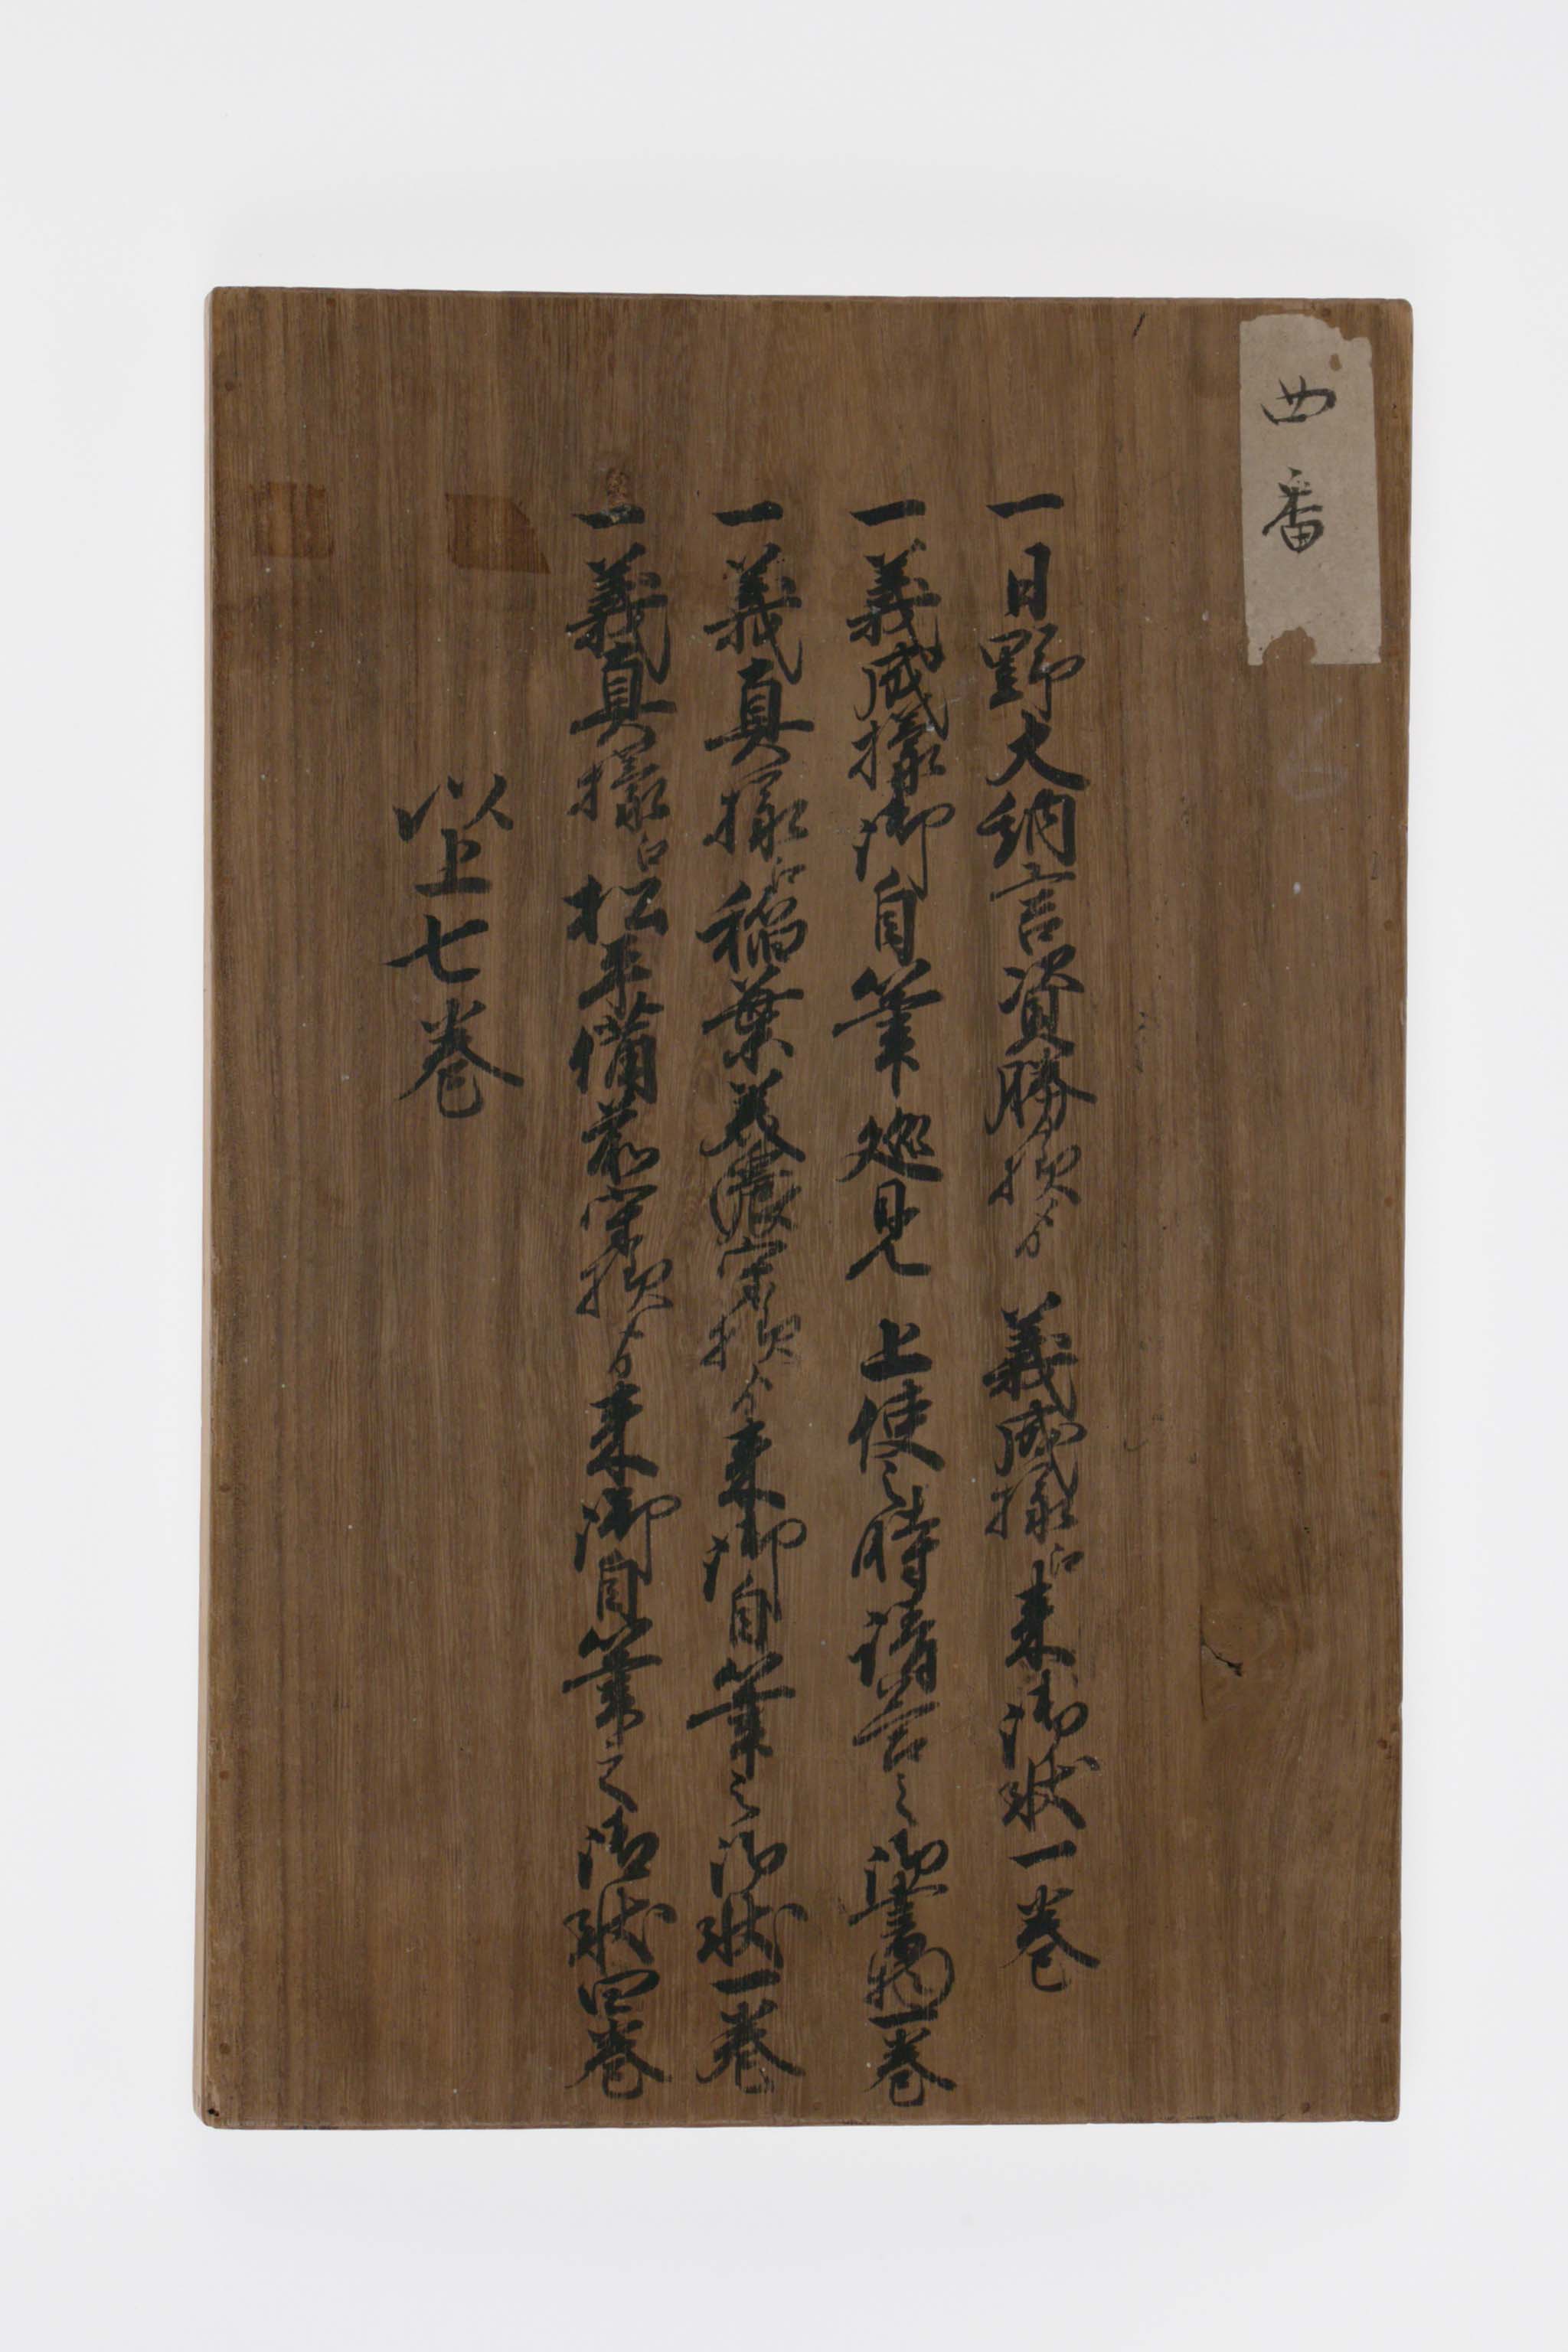 四番
一日野大納言資勝様ゟ 義成様江来御状一巻
一義成様御自筆巡見 上使之時請荅之御書物一巻
一義真様江稲葉美濃守様ゟ来御自筆之御状一巻
一義真様江松平備前守様ゟ来御自筆之御状四巻
以上七巻